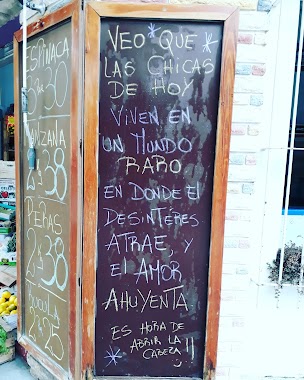 ESPINACA
3 x 30
MANZANA
2 x 38
PERAS
2 x 38
RUCULA
2 x 25
VEO * QUE *
LAS CHICAS
DE HOY
VIVEN EN
UN MUNDO
RARO
EN DONDE El
DESINTERES
ATRAE, Y
El AMOR
AHUYENTA
ES HORA DE
ABRIR LA
CABEZA !!